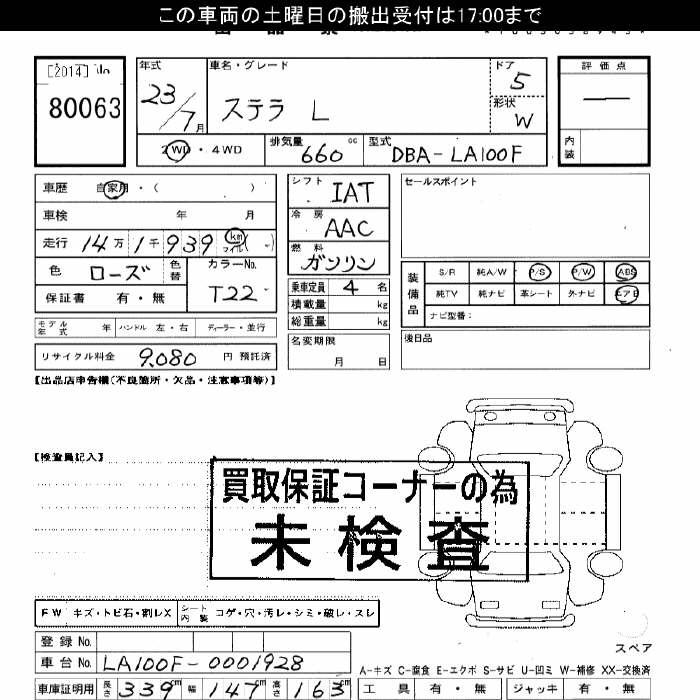 この車両の土曜日の搬出受付は17:00まで
[2014] No
80063
年式 車名・グレード ドア 評価点
23/7月 ステラ L 5 —
形状 W
2WD・4WD 排気量 660 cc 型式 DBA-LA100F 内装
車歴 自家用・( )
シフト IAT
セールスポイント
車検 年 月
冷房 AAC
走行 14万1千939 km マイル( )
燃料 ガソリン
色 ローズ 色替 カラーNo. T22
装備品 S/R 純A/W P/S P/W ABS
乗車定員 4 名
純TV 純ナビ 革シート 外ナビ エアB
保証書 有・無
積載量 kg
ナビ型番:
モデル年式 年 ハンドル 左・右 ディーラー・並行
総重量 kg
後日品
リサイクル料金 9,080 円 預託済
名変期限 月 日
【出品店申告欄(不良箇所・欠品・注意事項等)】
【検査員記入】
買取保証コーナーの為
未検査
FW キズ・トビ石・割レX シート内装 コゲ・穴・汚レ・シミ・破レ・スレ
登録No.
スペア
車台No. LA100F-0001928
A-キズ C-腐食 E-エクボ S-サビ U-凹ミ W-補修 XX-交換済
車庫証明用 長さ 339cm 幅 147cm 高さ 163cm 工具 有・無 ジャッキ 有・無